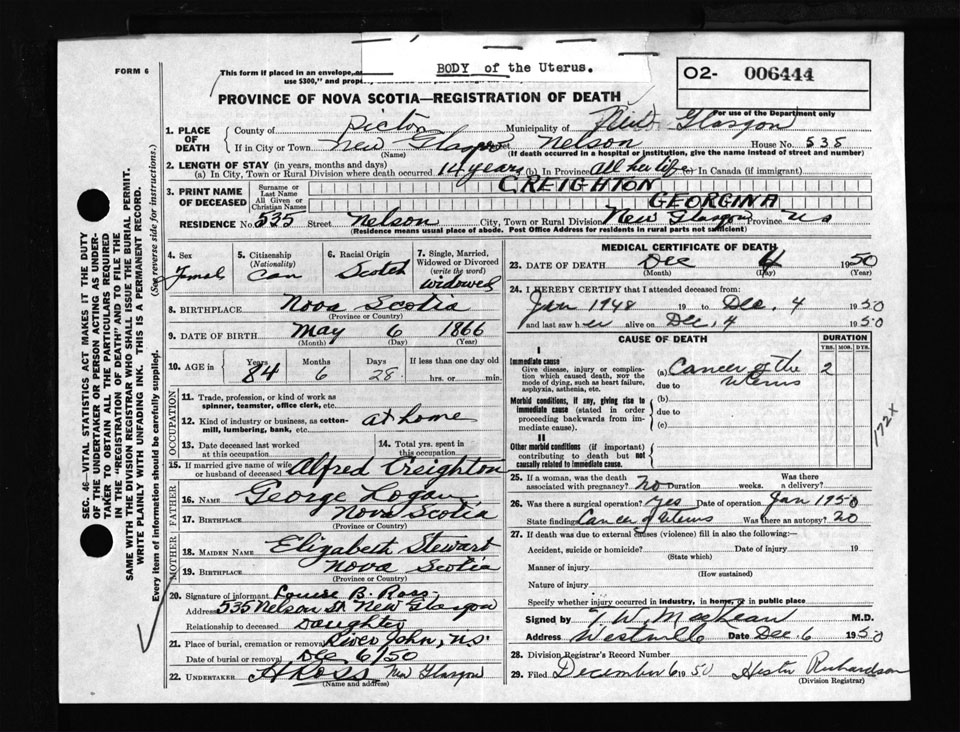 BODY of the Uterus.
FORM 6
This form if placed in an envelope,
use $300," and
02- 006444
For use of the Department only
PROVINCE OF NOVA SCOTIA—REGISTRATION OF DEATH
1. PLACE OF DEATH
County of Pictou Municipality of New Glasgow
If in City or Town New Glasgow Street Nelson House No. 535
(Name) (If death occurred in a hospital or institution, give the name instead of street and number)
2. LENGTH OF STAY (in years, months and days)
(a) In City, Town or Rural Division where death occurred 14 years (b) In Province All her life (c) In Canada (if immigrant)
3. PRINT NAME OF DECEASED
Surname or Last Name CREIGHTON
All Given or Christian Names GEORGINA
RESIDENCE No. 535 Street Nelson City, Town or Rural Division New Glasgow Province NS
(Residence means usual place of abode. Post Office Address for residents in rural parts not sufficient)
4. Sex
Female
5. Citizenship
(Nationality)
Can
6. Racial Origin
Scotch
7. Single, Married, Widowed or Divorced
(write the word)
widowed
8. BIRTHPLACE Nova Scotia
(Province or Country)
9. DATE OF BIRTH May 6 1866
(Month) (Day) (Year)
10. AGE in Years 84 Months 6 Days 28 If less than one day old
hrs. or min.
OCCUPATION
11. Trade, profession, or kind of work as spinner, teamster, office clerk, etc.
12. Kind of industry or business, as cotton-mill, lumbering, bank, etc. at home
13. Date deceased last worked at this occupation
14. Total yrs. spent in this occupation
15. If married give name of wife or husband of deceased Alfred Creighton
FATHER
16. NAME George Logan
17. BIRTHPLACE Nova Scotia
(Province or Country)
MOTHER
18. MAIDEN NAME Elizabeth Stewart
19. BIRTHPLACE Nova Scotia
(Province or Country)
20. Signature of informant Louise B. Ross
Address 535 Nelson St. New Glasgow
Relationship to deceased Daughter
21. Place of burial, cremation or removal River John, N.S.
Date of burial or removal Dec 6/50
22. UNDERTAKER H Ross New Glasgow
(Name and address)
MEDICAL CERTIFICATE OF DEATH
23. DATE OF DEATH Dec 4 1950
(Month) (Day)
24. I HEREBY CERTIFY that I attended deceased from:
Jan 1948 19 to Dec, 4 1950
and last saw her alive on Dec, 4 1950
CAUSE OF DEATH
DURATION
YRS. MOS. DYS.
I
Immediate cause
Give disease, injury or complication which caused death, not the mode of dying, such as heart failure, asphyxia, asthenia, etc.
(a) Cancer of the uterus 2
due to
Morbid conditions, if any, giving rise to immediate cause (stated in order proceeding backwards from immediate cause).
(b)
due to
(c)
II
Other morbid conditions (if important) contributing to death but not causally related to immediate cause.
172X
25. If a woman, was the death associated with pregnancy? No Duration weeks. Was there a delivery?
26. Was there a surgical operation? Yes Date of operation Jan 1950
State findings Cancer of uterus Was there an autopsy? no
27. If death was due to external causes (violence) fill in also the following:—
Accident, suicide or homicide? Date of injury 19
(State which)
Manner of injury
(How sustained)
Nature of injury
Specify whether injury occurred in industry, in home, or in public place
Signed by T W MacLean M.D.
Address Westville Date Dec 6 1950
28. Division Registrar's Record Number
29. Filed December 6 1950 Hester Richardson
(Division Registrar)
SEC. 46—VITAL STATISTICS ACT MAKES IT THE DUTY
OF THE UNDERTAKER OR PERSON ACTING AS UNDERTAKER
TO OBTAIN ALL THE PARTICULARS REQUIRED
IN THE "REGISTRATION OF DEATH" AND TO FILE THE
SAME WITH THE DIVISION REGISTRAR WHO SHALL ISSUE THE BURIAL PERMIT.
WRITE PLAINLY WITH UNFADING INK. THIS IS A PERMANENT RECORD.
Every item of information should be carefully supplied. (See reverse side for instructions.)